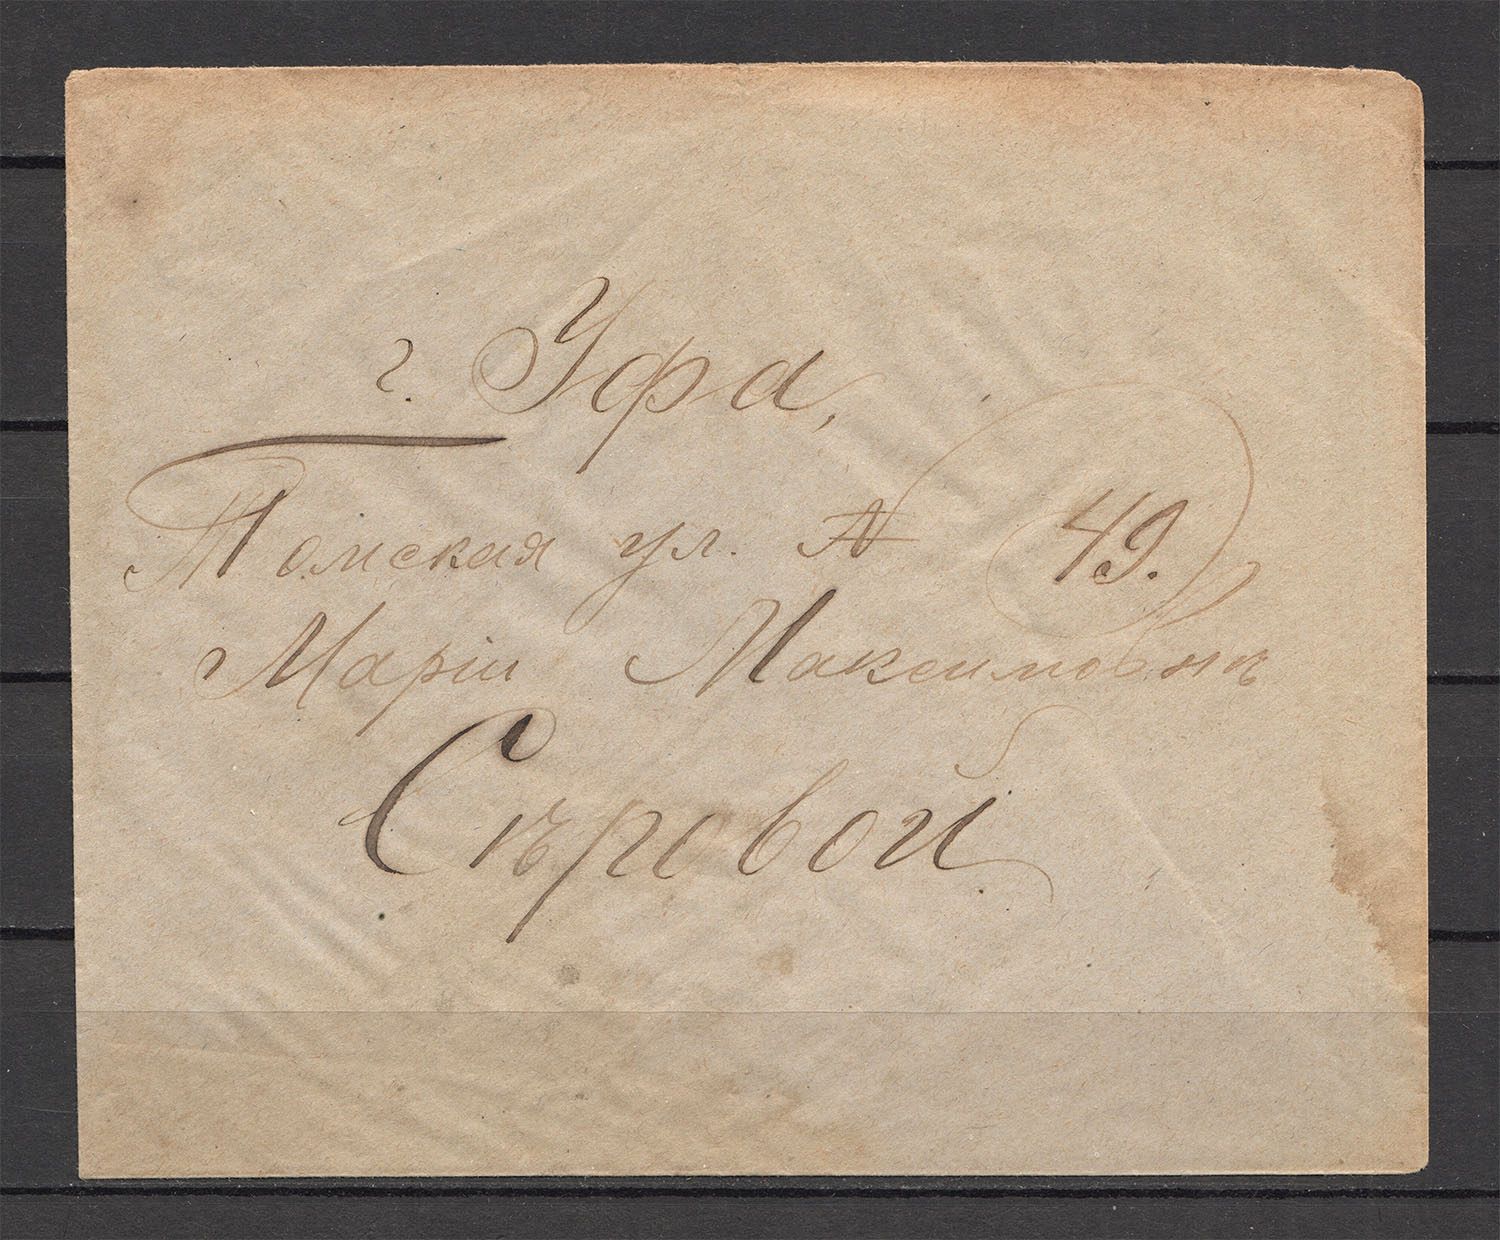 г. Уфа,
Томская ул. № 49.
Маріи Максимовнѣ
Сѣровой